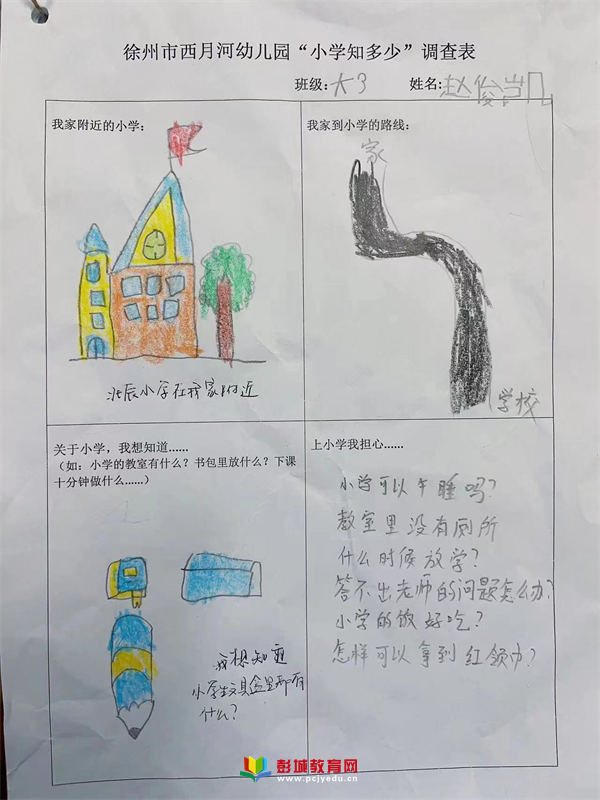 徐州市西月河幼儿园“小学知多少”调查表
班级：大3 姓名：赵俊岂凡
我家附近的小学：
北辰小学在我家附近
我家到小学的路线：
家
学校
关于小学，我想知道......
（如：小学的教室有什么？书包里放什么？下课
十分钟做什么......）
我想知道
小学生文具盒里都有
什么？
上小学我担心......
小学可以午睡吗？
教室里没有厕所
什么时候放学？
答不出老师的问题怎么办？
小学的饭好吃？
怎样可以拿到红领巾？
彭城教育网
www.pcjyedu.cn